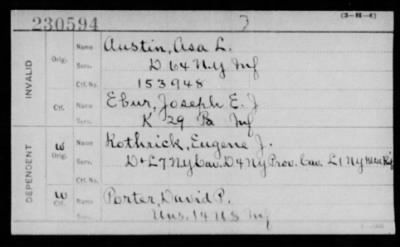 230594 7 (3-211-4)
INVALID
Orig. Name Austin, Asa L.
Serv. D 64 N.Y. Inf
Ctf. No. 153948
Ctf. Name Ebur, Joseph E. J
Serv. K 29 Pa Inf
DEPENDENT
W Orig. Name Kothrick, Eugene J.
Serv. D+L 7 NY Cav. D4 NY Prov. Cav. L1 NY
Ctf. No.
W Ctf. Name Porter, David P.
Serv. Uns. 14 U S Inf